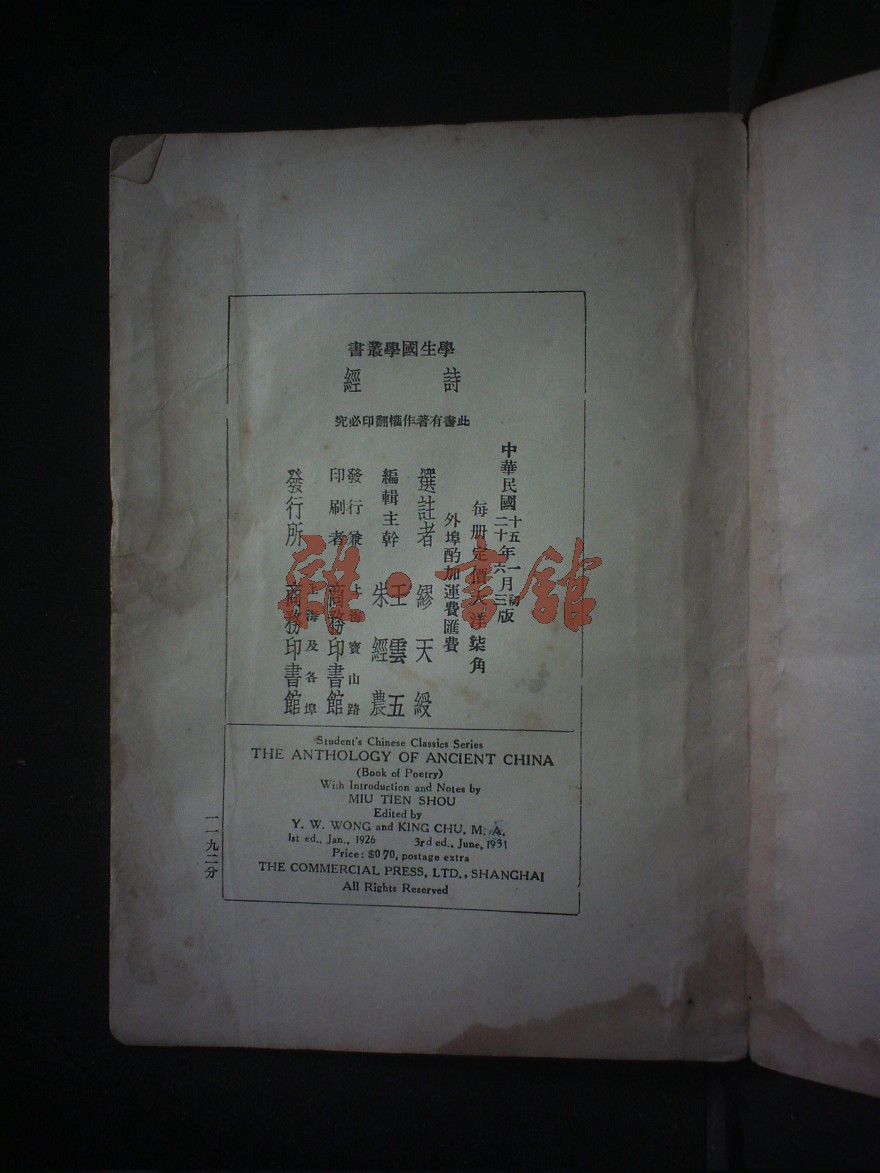 學生國學叢書
詩經
此書有著作權翻印必究
中華民國十五年一月初版
二十年六月三版
每册定價大洋柒角
外埠酌加運費匯費
選註者 繆天綬
編輯主幹 王雲五 朱經農
發行兼印刷者 上海寶山路 商務印書館
發行所 上海及各埠 商務印書館
雜·書館
Student's Chinese Classics Series
THE ANTHOLOGY OF ANCIENT CHINA
(Book of Poetry)
With Introduction and Notes by
MIU TIEN SHOU
Edited by
Y. W. WONG and KING CHU, M. A.
1st ed., Jan., 1926 3rd ed., June, 1931
Price: $0 70, postage extra
THE COMMERCIAL PRESS, LTD., SHANGHAI
All Rights Reserved
一一九二分